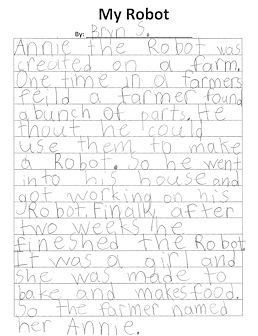 My Robot
By: Bryn S.
Annie the Robot was
created on a farm.
One time in a farmers
feild a farmer found
a bunch of parts. He
thout he could
use them to make
a Robot. So he went
into his house and
got working on his
Robot. Finaly after
two weeks he
fineshed the Robot
It was a girl and
she was made to
bake and makes food.
So the farmer named
her Annie.